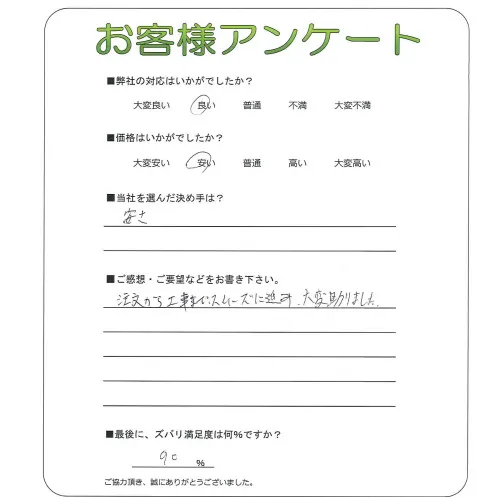 お客様アンケート
■弊社の対応はいかがでしたか？
大変良い 良い 普通 不満 大変不満
■価格はいかがでしたか？
大変安い 安い 普通 高い 大変高い
■当社を選んだ決め手は？
安さ
■ご感想・ご要望などをお書き下さい。
注文から工事までスムーズに進み、大変助りました。
■最後に、ズバリ満足度は何%ですか？
90 %
ご協力頂き、誠にありがとうございました。